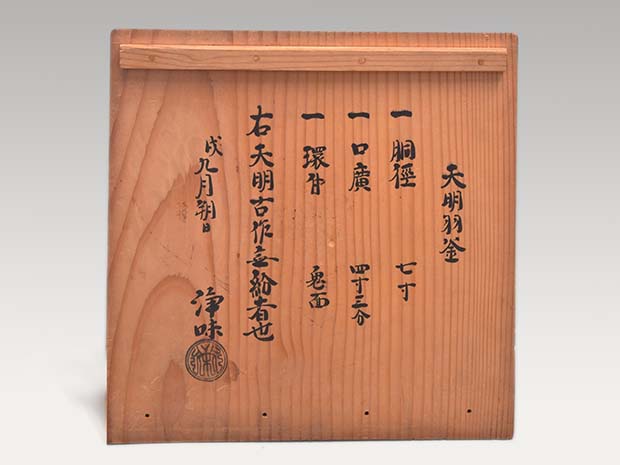 天明羽釜
一 胴径 七寸
一 口廣 四寸三分
一 環付 鬼面
右天明古作無紛者也
戌九月朔日
浄味